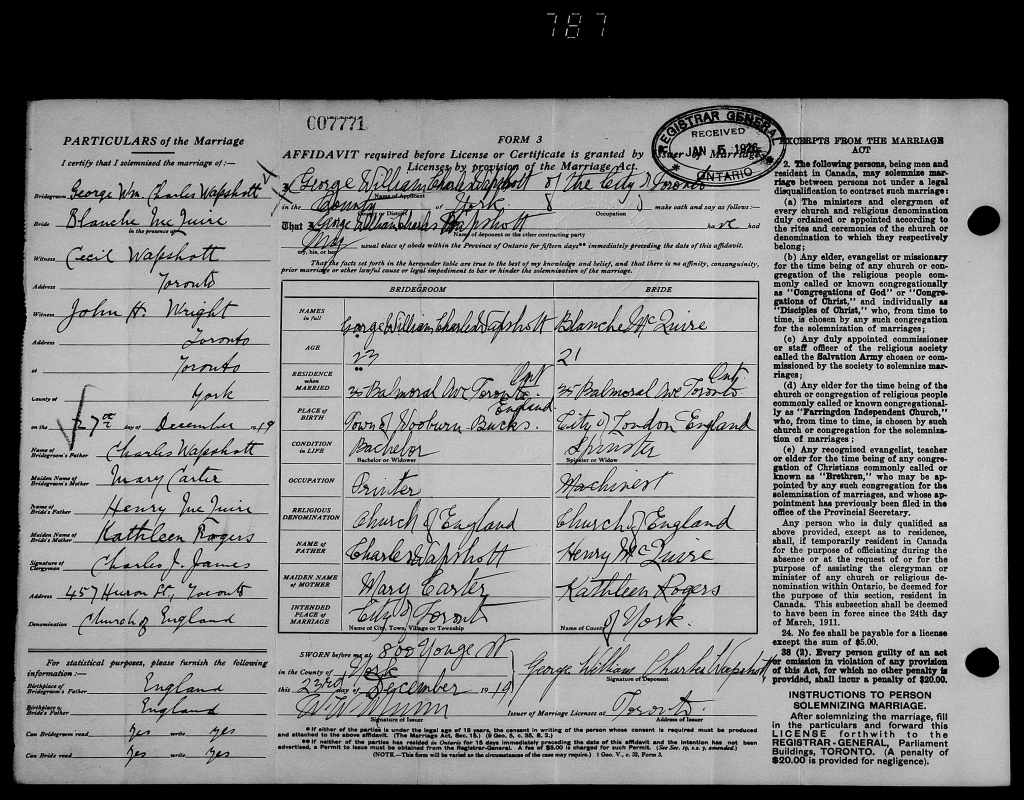 787
C07771
REGISTRAR GENERAL
RECEIVED
JAN 5 1926
ONTARIO
PARTICULARS of the Marriage
I certify that I solemnised the marriage of:—
Bridegroom George Wm. Charles Wapshott
Bride Blanche McQuire
in the presence of
Witness Cecil Wapshott
Address Toronto
Witness John H. Wright
Address Toronto
at Toronto
County of York
on the 27th day of December 1919
Name of Bridegroom's Father Charles Wapshott
Maiden Name of Bridegroom's Mother Mary Carter
Name of Bride's Father Henry McQuire
Maiden Name of Bride's Mother Kathleen Rogers
Signature of Clergyman Charles J. James
Address 457 Huron St, Toronto
Denomination Church of England
For statistical purposes, please furnish the following
information:—
Birthplace of Bridegroom's Father England
Birthplace of Bride's Father England
Can Bridegroom read Yes write yes
Can Bride read Yes write Yes
FORM 3
AFFIDAVIT required before License or Certificate is granted by Issuer of Marriage
Licenses by provision of the Marriage Act.
I, George William Charles Wapshott of the City of Toronto
Name of Applicant
in the County of York make oath and say as follows:—
County or District
Occupation
That I George William Charles Wapshott have had
Name of deponent or the other contracting party
My usual place of abode within the Province of Ontario for fifteen days** immediately preceding the date of this affidavit.
my, his, or her
That the facts set forth in the hereunder table are true to the best of my knowledge and belief, and that there is no affinity, consanguinity,
prior marriage or other lawful cause or legal impediment to bar or hinder the solemnisation of the marriage.
BRIDEGROOM BRIDE
NAMES in full George William Charles Wapshott Blanche McQuire
AGE 23 21
RESIDENCE WHEN MARRIED 35 Balmoral Ave Toronto Ont 35 Balmoral Ave Toronto Ont
PLACE OF BIRTH Town of Wooburn Bucks. England City of London England
CONDITION IN LIFE Bachelor Spinster
Bachelor or Widower Spinster or Widow
OCCUPATION Printer Machinest
RELIGIOUS DENOMINATION Church of England Church of England
NAME OF FATHER Charles Wapshott Henry McQuire
MAIDEN NAME of MOTHER Mary Carter Kathleen Rogers
INTENDED PLACE OF MARRIAGE City of Toronto of York.
Name of City, Town, Village or Township Name of County
SWORN before me at 800 Yonge St
in the County of York George William Charles Wapshott
Signature of Deponent
this 23rd day of December 1919
W. W. Munn Issuer of Marriage Licenses at Toronto.
Signature of Issuer Address of Issuer
* If either of the parties is under the legal age of 18 years, the consent in writing of the person whose consent is required must be produced
and attached to the above affidavit. (The Marriage Act, Sec. 15.) (9 Geo. 5, c. 35, S. 2.)
** If neither of the parties has resided in Ontario for 15 days immediately preceding the date of this affidavit and the intention has not been
advertised, a Permit to issue must be obtained from the Registrar-General. A fee of $5.00 is charged for such Permit. (See Sec. 19, s.s. 7, amended.)
(NOTE.—This form will be varied as the circumstances of the case may require.) 1 Geo. V., c. 32, Form 3.
EXCERPTS FROM THE MARRIAGE
ACT
2. The following persons, being men and
resident in Canada, may solemnize mar-
riage between persons not under a legal
disqualification to contract such marriage:
(a) The ministers and clergymen of
every church and religious denomination
duly ordained or appointed according to
the rites and ceremonies of the church or
denomination to which they respectively
belong;
(b) Any elder, evangelist or missionary
for the time being of any church or con-
gregation of the religious people com-
monly called or known congregationally
as "Congregations of God" or "Congre-
gations of Christ," and individually as
"Disciples of Christ," who, from time to
time, is chosen by any such congregation
for the solemnization of marriages;
(c) Any duly appointed commissioner
or staff officer of the religious society
called the Salvation Army chosen or com-
missioned by the society to solemnize mar-
riages;
(d) Any elder for the time being of the
church or congregation of religious people
commonly called or known congregational-
ly as "Farringdon Independent Church,"
who, from time to time, is chosen by such
church or congregation for the solemniza-
tion of marriages;
(e) Any recognised evangelist, teacher
or elder for the time being of any congre-
gation of Christians commonly called or
known as "Brethren," who may be ap-
pointed by any such congregation for the
solemnization of marriages, and whose ap-
pointment has previously been filed in the
office of the Provincial Secretary.
Any person who is duly qualified as
above provided, except as to residence,
shall, if temporarily resident in Canada
for the purpose of officiating during the
absence or at the request of or for the
purpose of assisting the clergyman or
minister of any church or religious de-
nomination within Ontario, be deemed for
the purpose of this section, resident in
Canada. This subsection shall be deemed
to have been in force since the 24th day
of March, 1911.
24. No fee shall be payable for a license
except the sum of $5.00.
38 (2). Every person guilty of an act
or omission in violation of any provision
of this Act, for which no other penalty is
provided, shall incur a penalty of $20.00.
INSTRUCTIONS TO PERSON
SOLEMNIZING MARRIAGE.
After solemnizing the marriage, fill
in the particulars and forward this
LICENSE forthwith to the
REGISTRAR-GENERAL, Parliament
Buildings, TORONTO. (A penalty of
$20.00 is provided for negligence).